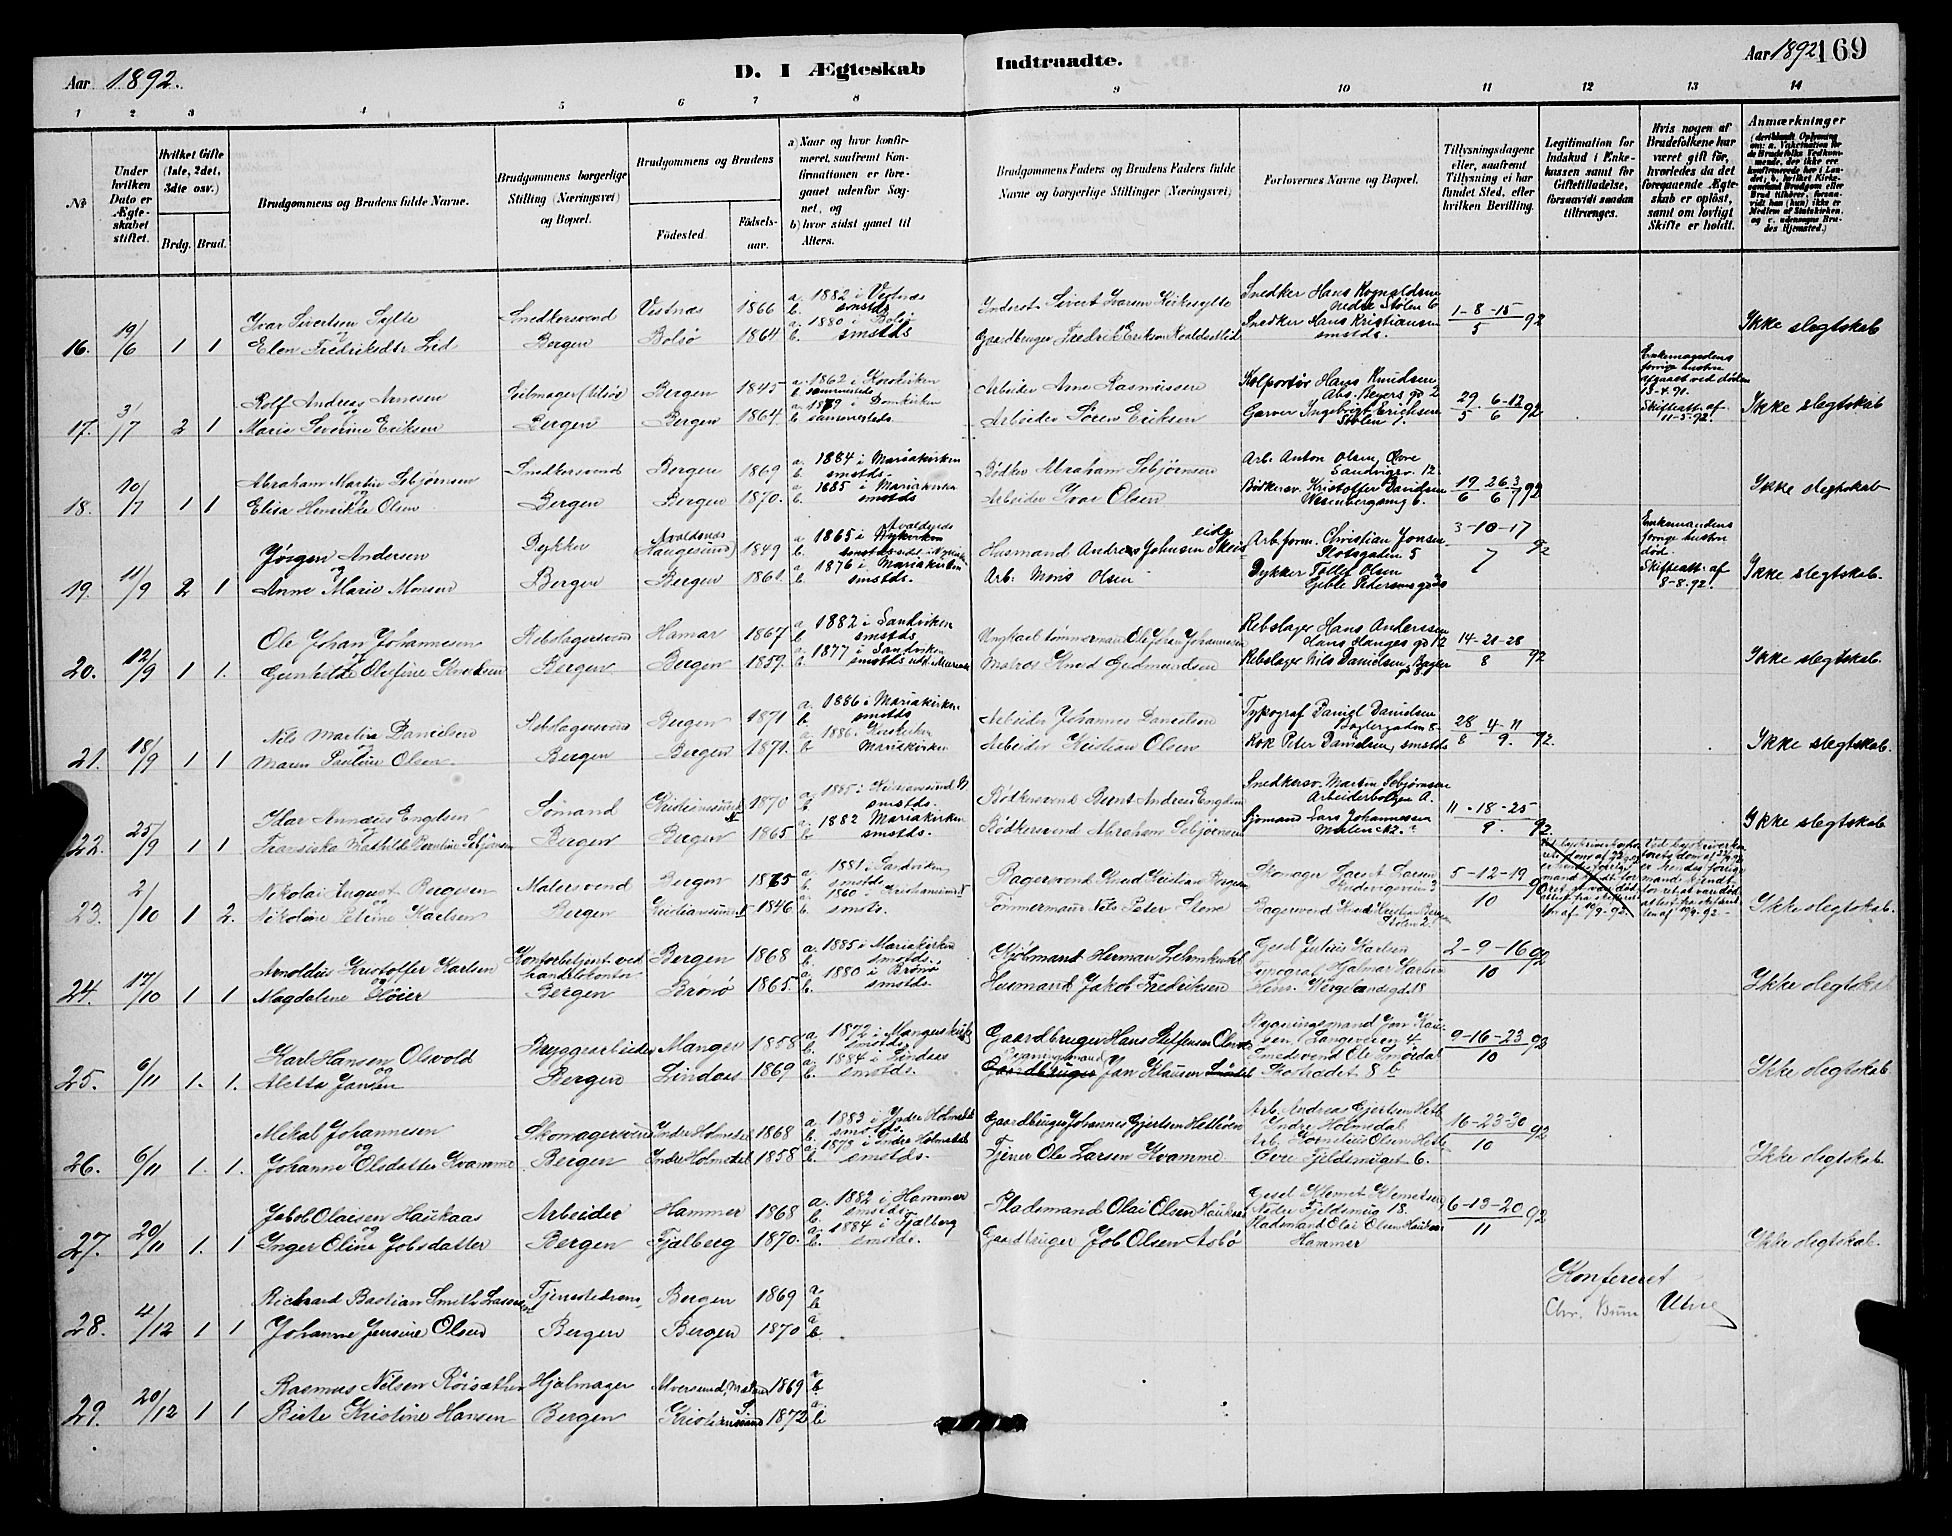 Aar 1892.
D. I Ægteskab Indtraadte.
Aar 1892 169
1 2 3 4 5 6 7 8 9 10 11 12 13 14
№
Under hvilken Dato er Ægteskabet stiftet.
Hvilket Gifte (1ste, 2det, 3die osv.)
Brdg. Brud.
Brudgommens og Brudens fulde Navne.
Brudgommens borgerlige Stilling (Næringsvei) og Bopæl.
Brudgommens og Brudens
Födested. Födselsaar.
a) Naar og hvor konfirmeret, saafremt Konfirmationen er foregaaet udenfor Sognet, og
b) hvor sidst gaaet til Alters.
Brudgommens Faders og Brudens Faders fulde Navne og borgerlige Stillinger (Næringsvei)
Forlovernes Navne og Bopæl.
Tillysningsdagene eller, saafremt Tillysning ei har fundet Sted, efter hvilken Bevilling.
Legitimation for Indskud i Enkekassen samt for Giftetilladelse, forsaavidt saadan tiltrænges.
Hvis nogen af Brudefolkene har været gift før, hvorledes da det foregaaende Ægteskab er oplöst, samt om lovligt Skifte er holdt.
Anmærkninger
16. 19/6 1 1
Ivar Sivertsen Sylte Snedkersvend Vestnæs 1866 a. 1882 i Vestnæs b. smstds Snedker Hans
og Elen Fredriksdtr Lied Bergen Bolsø 1864 a. 1880 i Bolsø b. smstds Gaardbruger Fredrik Erikson Snedker Hans Kristiansen smstds. 1-8-15/5 92 Ikke slegtskab
17. 3/7 2 1
Rolf Andreas Arnesen Bergen 1845 a. 1862 i Korskirken b. sammesteds Arbeider Arne Rasmussen Kolportør Hans Knudsen Abs. Beyers gd 2
og Marie Severine Eriksen Bergen Bergen 1864 a. 1879 i Domkirken b. sammesteds Arbeider Søren Eriksen Garver Ingebrigt Erichsen Stølen 1. 29/5 6-12/6 92 Enkemandens forrige hustru afgaaet ved døden 13-4-91. Skifteatt. af 11-3-92. Ikke slegtskab
18. 10/7 1 1
Abraham Martin Sebjørnsen Snedkersvend Bergen 1869 a. 1884 i Mariakirken b. smstds. Bødker Abraham Sebjørnsen Arb. Anton Olsen, Øvre Sandvigsv. 12.
og Elisa Henrikke Olsen Bergen Bergen 1870. a. 1885 i Mariakirken b. smstds Arbeider Ivar Olsen Bødkersv. Kristoffer Danielsen Wesenbergsmg 6. 19/6 26/6 3/7 92 Ikke slegtskab
19. 11/9 2 1
Jörgen Andersen Dykker Avaldsnes Haugesund 1849 a. 1865 i Avaldsnes Husmand Andreas Johnsen Skeiseide Arb.form. Christian Jonsen Slotsgaden 5
og Anne Marie Monsen Bergen Bergen 1861. a. 1876 i Mariakirken b. smstds. Arb. Mons Olsen Dykker Tollef Olsen Geble Pedersens gd 3 3-10-17/7 92 Enkemandens forrige hustru død. Skifteatt. af 8-8-92. Ikke slegtskab.
20. 12/9 1 1.
Ole Johan Johannesen Rebslagersvend Hamar 1867 a. 1882 i Sandviken b. smstds Ungkarl tømmermand Ole Johan Johannesen Rebslager Hans Andersen Hans Hauges gd 12
og Gunhilde Olefine Knudsen Bergen Bergen 1859. a. 1877 i Sandviken Matros Knud Gudmundsen Rebslager Nils Danielsen, 14-21-28/8 92 Ikke slegtskab.
21. 18/9 1 1
Nils Martin Danielsen Rebslagersvend Bergen 1871 a. 1886 i Mariakirken b. smstds Arbeider Johannes Danielsen Typograf Daniel Danielsen
og Maren Pauline Olsen Bergen Bergen 1871. a. 1886 i Korskirken b. Mariakirken Arbeider Kristian Olsen Kok Peter Danielsen, smstds 28/8 4-11/9. 92. Ikke slegtskab.
22. 25/9 1 1
Idar Annæus Engelsen Sømand Kristianssund N 1870 a. 1885 i Kristianssund N b. smstds. Bødkersvend Bernt Andreas Engelsen Snedkersv. Martin Sebjørnsen Arbeiderboligen A.
og Fransiska Mathilde Berntine Sebjørnsen Bergen Bergen 1865 a. 1882 Mariakirken b. smstds. Bødkersvend Abraham Sebjørnsen Sjømand Lars Johannesen 11-18-25/9. 92 Ikke slegtskab
23. 2/10 1 2.
Nikolai August Bergesen Malersvend Bergen 1865 a. 1881 i Sandviken b. smstds Bagersvend Knud Kristian Bergesen Skomager Laurits Larsen
og Nikoline Petrine Karlsen Bergen Kristianssund N 1846 a. 1860 i Kristianssund N b. smsts. Tømmermand Nils Peter Stene Bagersvend Knud Kristian Bergesen Stølen 2. 5-12-19/10 92 Ikke slegtskab.
24. 17/10 1 1
Arnoldus Kristoffer Karlsen Kontorbetjent ved handelskontor Bergen 1868 a. 1885 i Mariakirken b. smstds. Kjøbmand Herman Lehmkuhl Gesel Julius Karlsen
og Magdalene Røier Bergen Brønø 1865. a. 1880 i Brønø b. smstds. Husmand Jakob Fredriksen Typograf Hjalmar Karlsen Henr. Wergelandsgd. 18 2-9-16/10 92 Ikke slegtskab
25. 6/11 1. 1.
Karl Hansen Olsvold Bryggearbeider Manger 1858 a. 1872 i Mangers kirke b. smstds Gaardbruger Hans Steffensen Olsvold Bygningsmand Jan Klausen, Langeveien 4
og Metta Jansen Bergen Lindaas 1869 a. 1884 i Lindaas b. smstds. Bygningsmand Gaardbruger Jan Klausen Smedsvend Ole Smørdal 9-16-23/10 92 Ikke slegtskab
26. 6/11 1. 1.
Mikal Johannesen Skomagersvend Indre Holmedal 1868 a. 1883 i Indre Holmedal b. smstds. Gaardbruger Johannes Gjertsen Arb. Andreas Gjertsen Indre Holmedal
og Johanne Olsdatter Kvamme Bergen Indre Holmedal 1858 a. 1873 i Indre Holmedal b. smstds. Tjener Ole Larsen Kvamme Arb. Kornelius Olsen Øvre Fjeldsmuget 6. 16-23-30/10 92 Ikke slegtskab.
27. 20/11 1. 1
Jakob Olaisen Haukaas Arbeider Hammer 1868 a. 1882 i Hammer b. smstds. Pladsmand Olai Olsen Haukaas Gesel Klemet Klemetsen Nedre Fjeldsmug 18.
og Inger Oline Jobsdatter Bergen Fjelberg 1870. a. 1884 i Fjelberg b. smstds. Gaardbruger Job Olsen Asbø Pladsmand Olai Olsen Haukaas Hammer 6-13-20/11 92 Ikke slegtskab.
28. 4/12 1 1
Richard Bastian Smith Larsen Tjenestedreng Bergen 1869 a. b. Konfereret
Johanne Jensine Olsen Bergen Bergen 1870 a. b. Chr. Bruun
29. 20/12 1 1
Rasmus Nilsen Röisæther Hjulmager 1869 a. b.
Birte Kristine Hansen Bergen Kristianssund 1872 a. b.